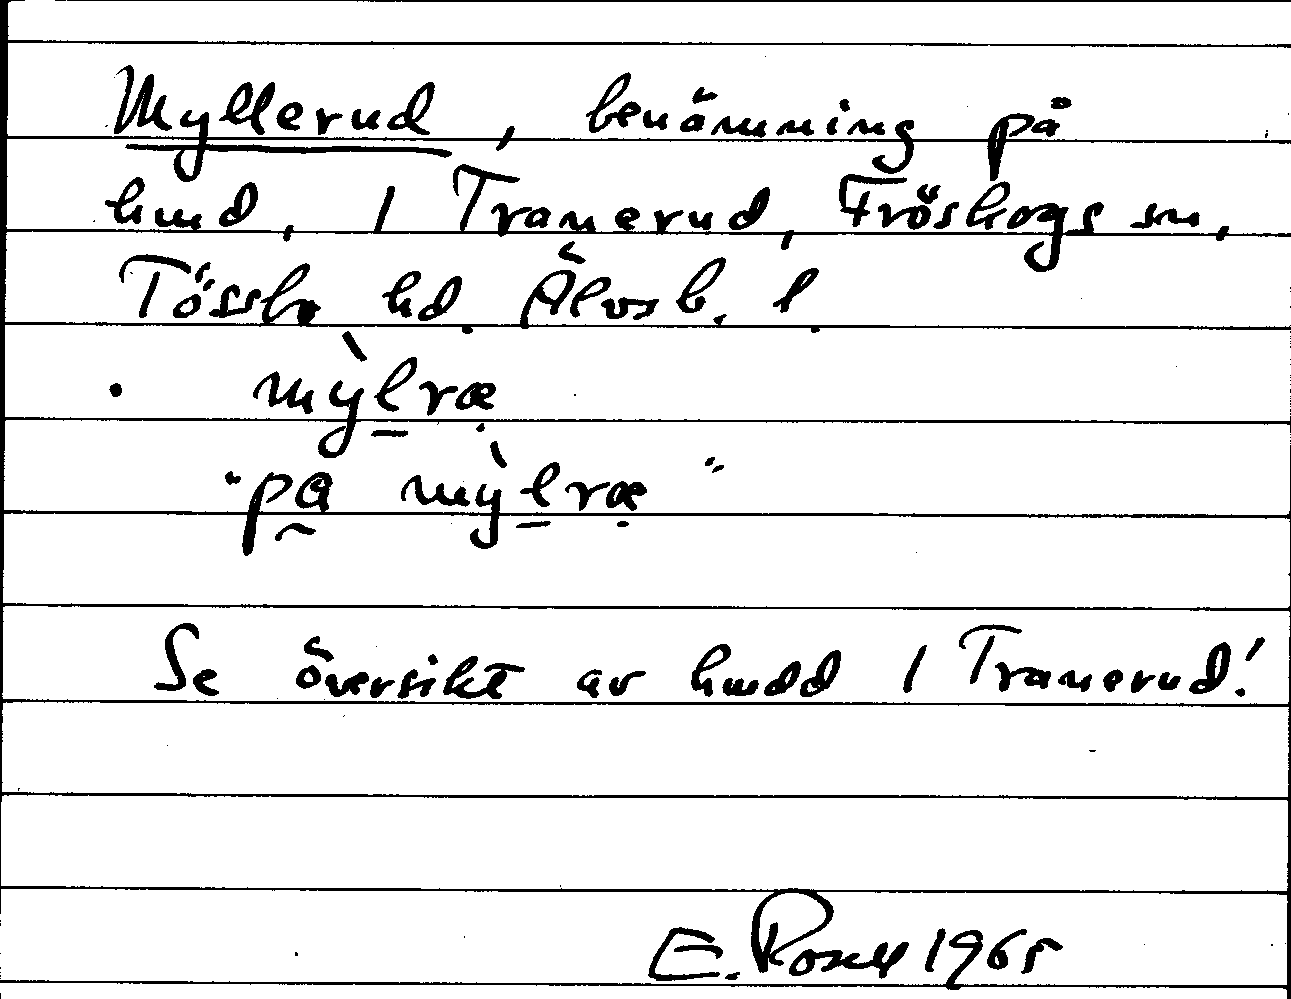 Myllerud, benämning på
hmd, 1 Tranerud, Fröskogs sn,
Tössbo hd. Älvsb. l.
mỳl̠ræ̣
"pa̰ mỳl̠ræ̣"
Se översikt av hmdd 1 Tranerud!
E. Rosell 1965